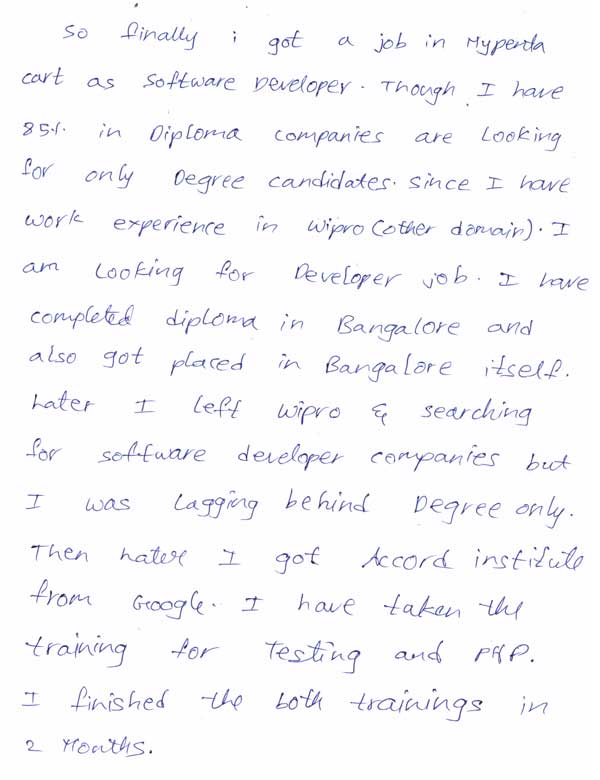 So finally i got a job in Hyperda
cart as Software Developer. Though I have
85% in Diploma companies are Looking
for only Degree candidates. Since I have
work experience in Wipro (other domain). I
am Looking for Developer job. I have
completed diploma in Bangalore and
also got placed in Bangalore itself.
Later I left Wipro & searching
for software developer companies but
I was Lagging behind Degree only.
Then Later I got Accord institute
from Google. I have taken the
training for Testing and PHP.
I finished the both trainings in
2 Months.